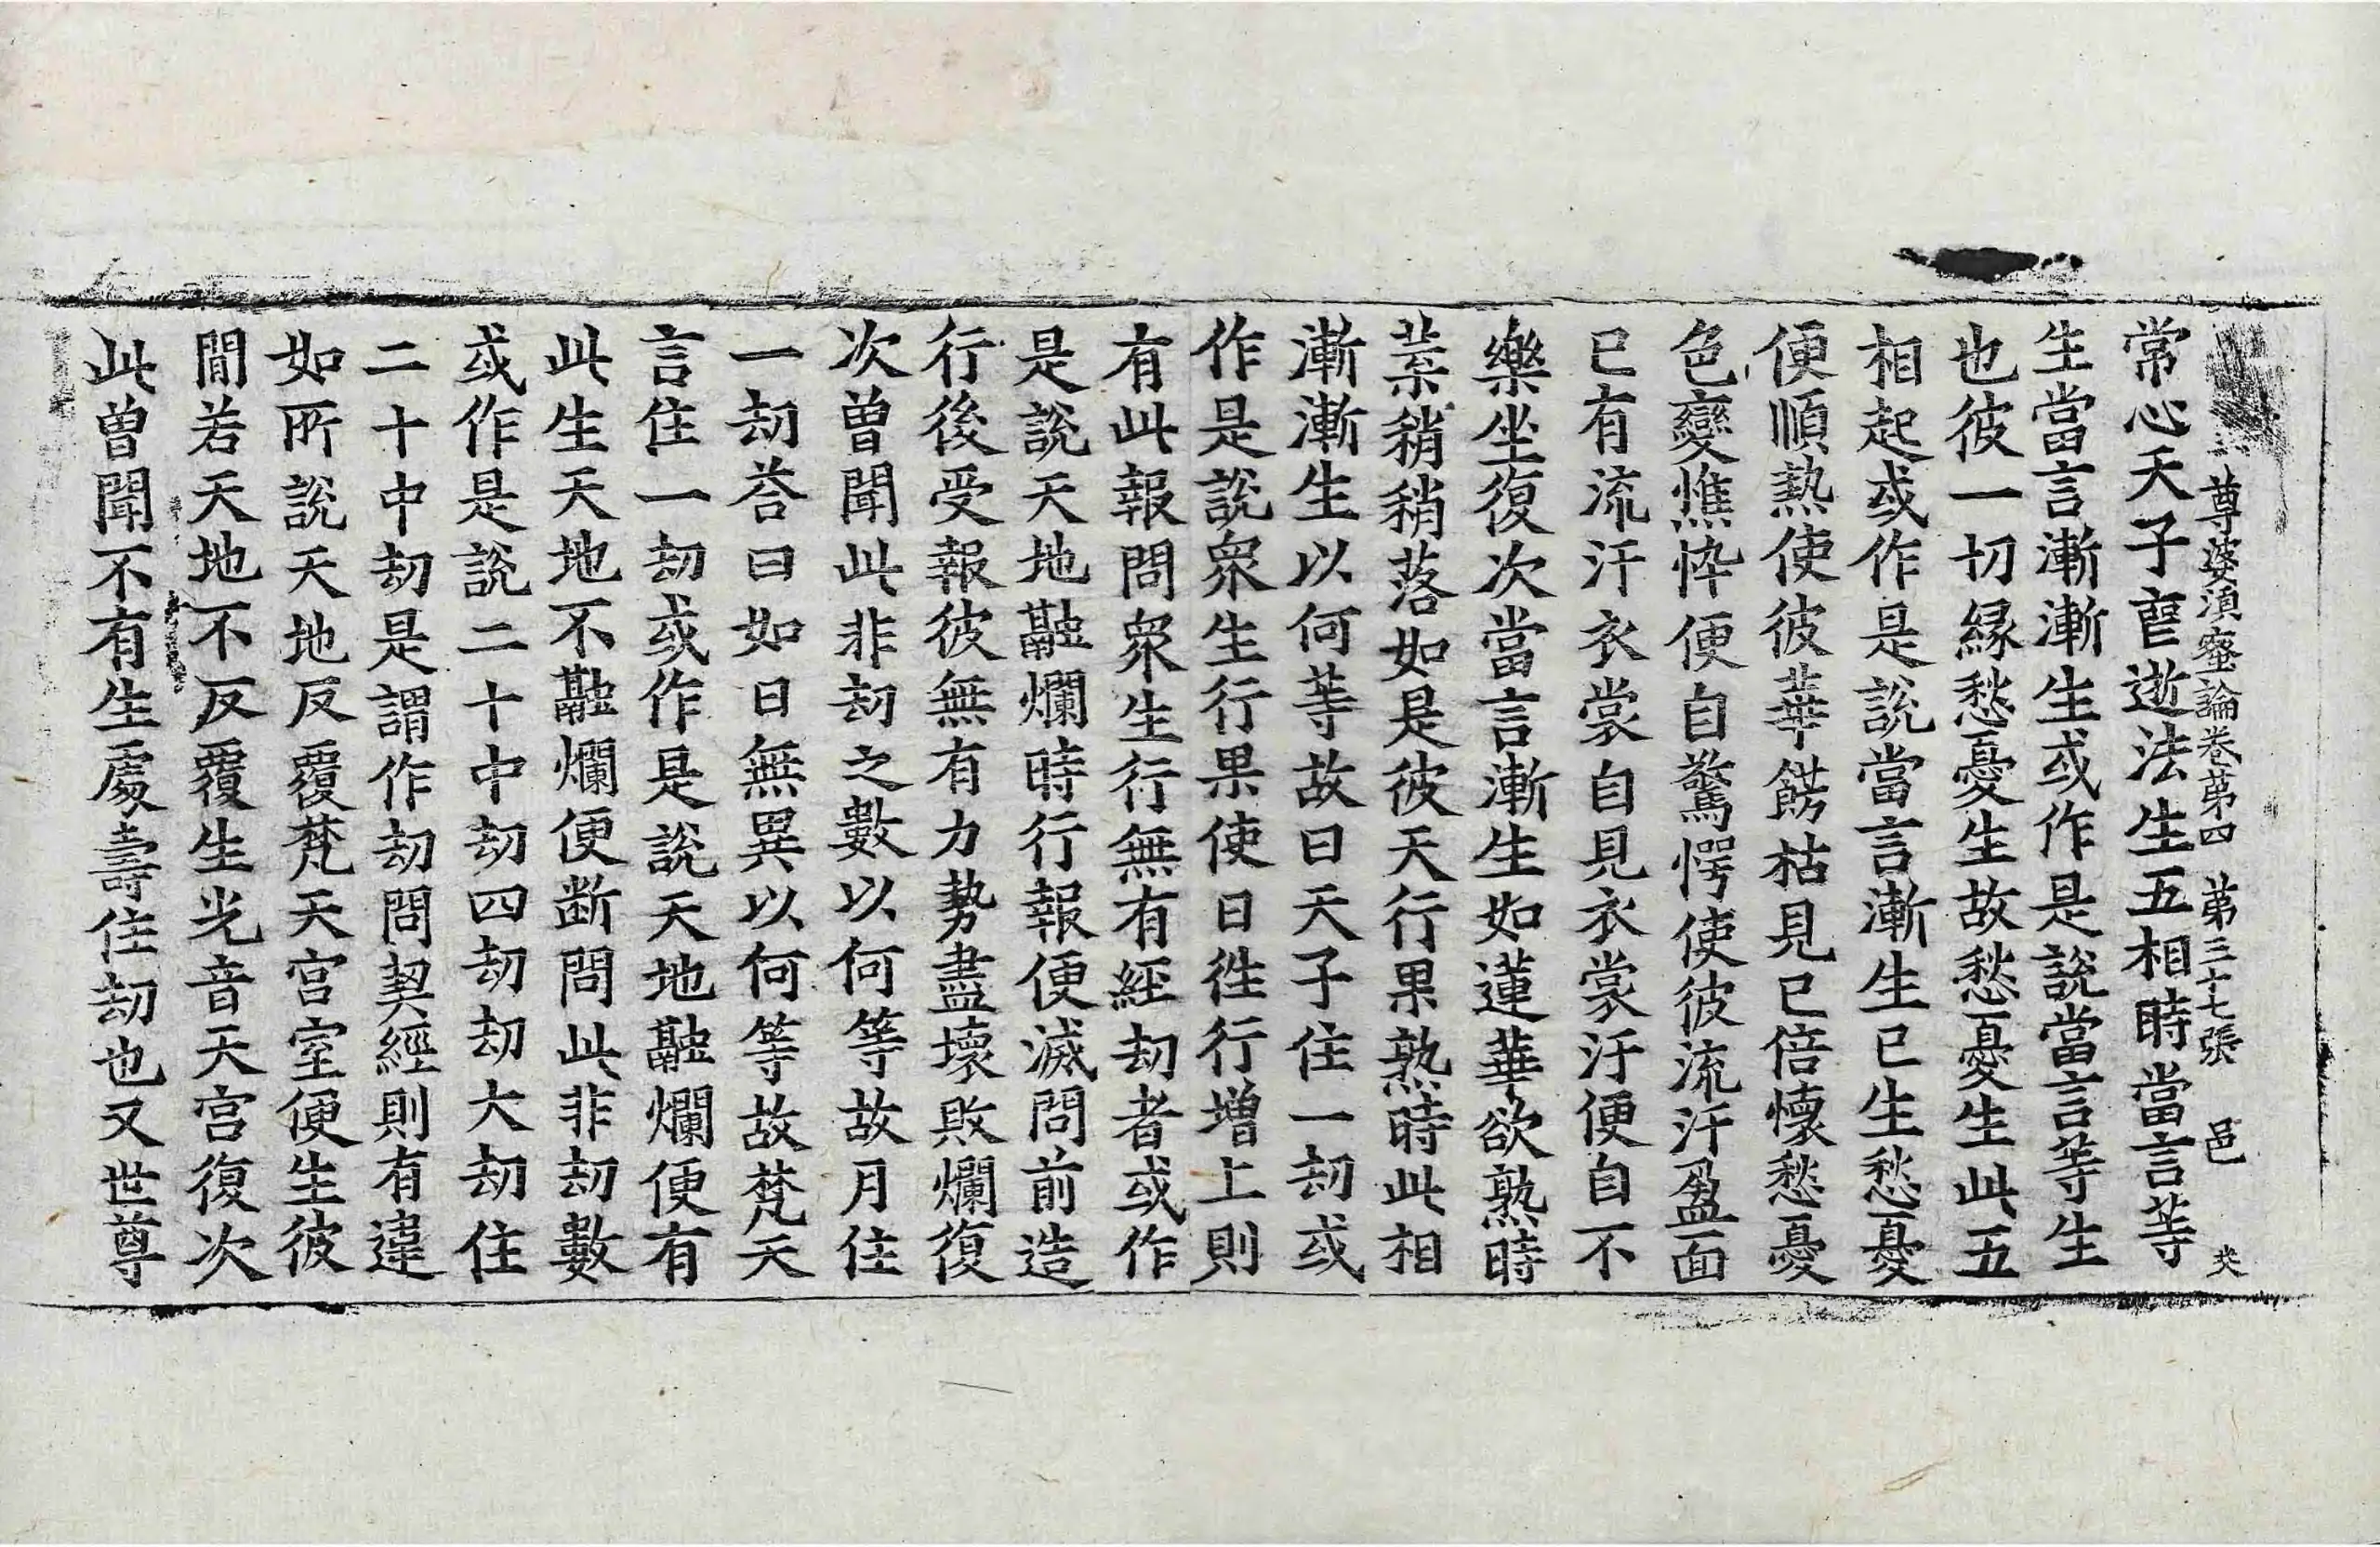 尊婆湏蜜論卷苐四 苐三十七張 邑 夾
常心天子𦣱逝法生五相時當言等
生當言漸漸生或作是說當言等生
也彼一切緣愁憂生故愁憂生此五
相起或作是說當言漸生已生愁憂
便順熱使彼華餝枯見已倍懷愁憂
色變憔悴便自驚愕使彼流汗盈面
已有流汗衣裳自見衣裳汙便自不
樂坐復次當言漸生如蓮華欲熟時
葉稍稍落如是彼天行果熟時此相
漸漸生以何等故曰天子住一劫或
作是說衆生行果使日徃行增上則
有此報問衆生行無有經劫者或作
是說天地融爛時行報便滅問前造
行後受報彼無有力勢盡壞敗爛復
次曾聞此非劫之數以何等故月住
一劫荅曰如日無異以何等故梵天
言住一劫或作是說天地融爛便有
此生天地不融爛便断問此非劫數
或作是說二十中劫四劫劫大劫住
二十中劫是謂作劫問契經則有違
如所說天地反覆梵天宮室便生彼
間若天地不反覆生光音天宮復次
此曾聞不有生處壽住劫也又世尊